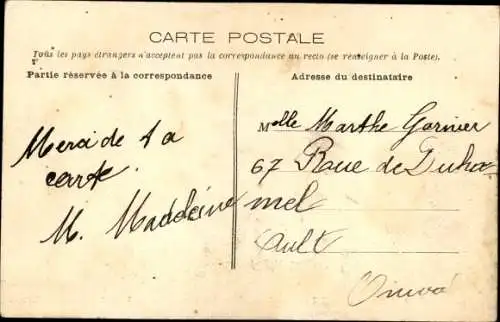 CARTE POSTALE
Tous les pays étrangers n'acceptent pas la correspondance au recto (se renseigner à la Poste).
Partie réservée à la correspondance
Adresse du destinataire
Merci de ta
carte
M. Madeleine
Melle Marthe Garnier
67 Roue de Duha
mel
Ault